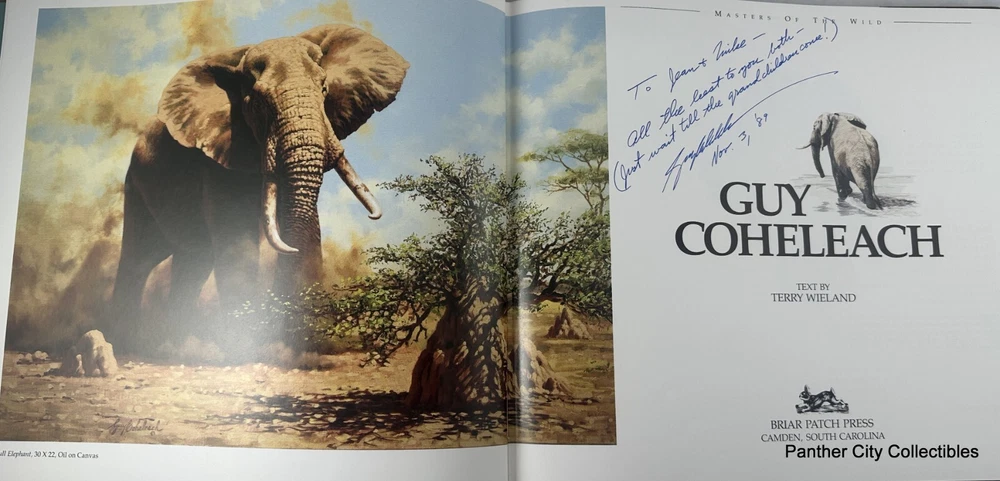 MASTERS OF THE WILD
To Jean & Mike –
All the best to you both –
(Just wait till the grandchildren come!)
Guy Coheleach
Nov. 3, '89
GUY
COHELEACH
TEXT BY
TERRY WIELAND
BRIAR PATCH PRESS
CAMDEN, SOUTH CAROLINA
Panther City Collectibles
Guy Coheleach
ull Elephant, 30 X 22, Oil on Canvas